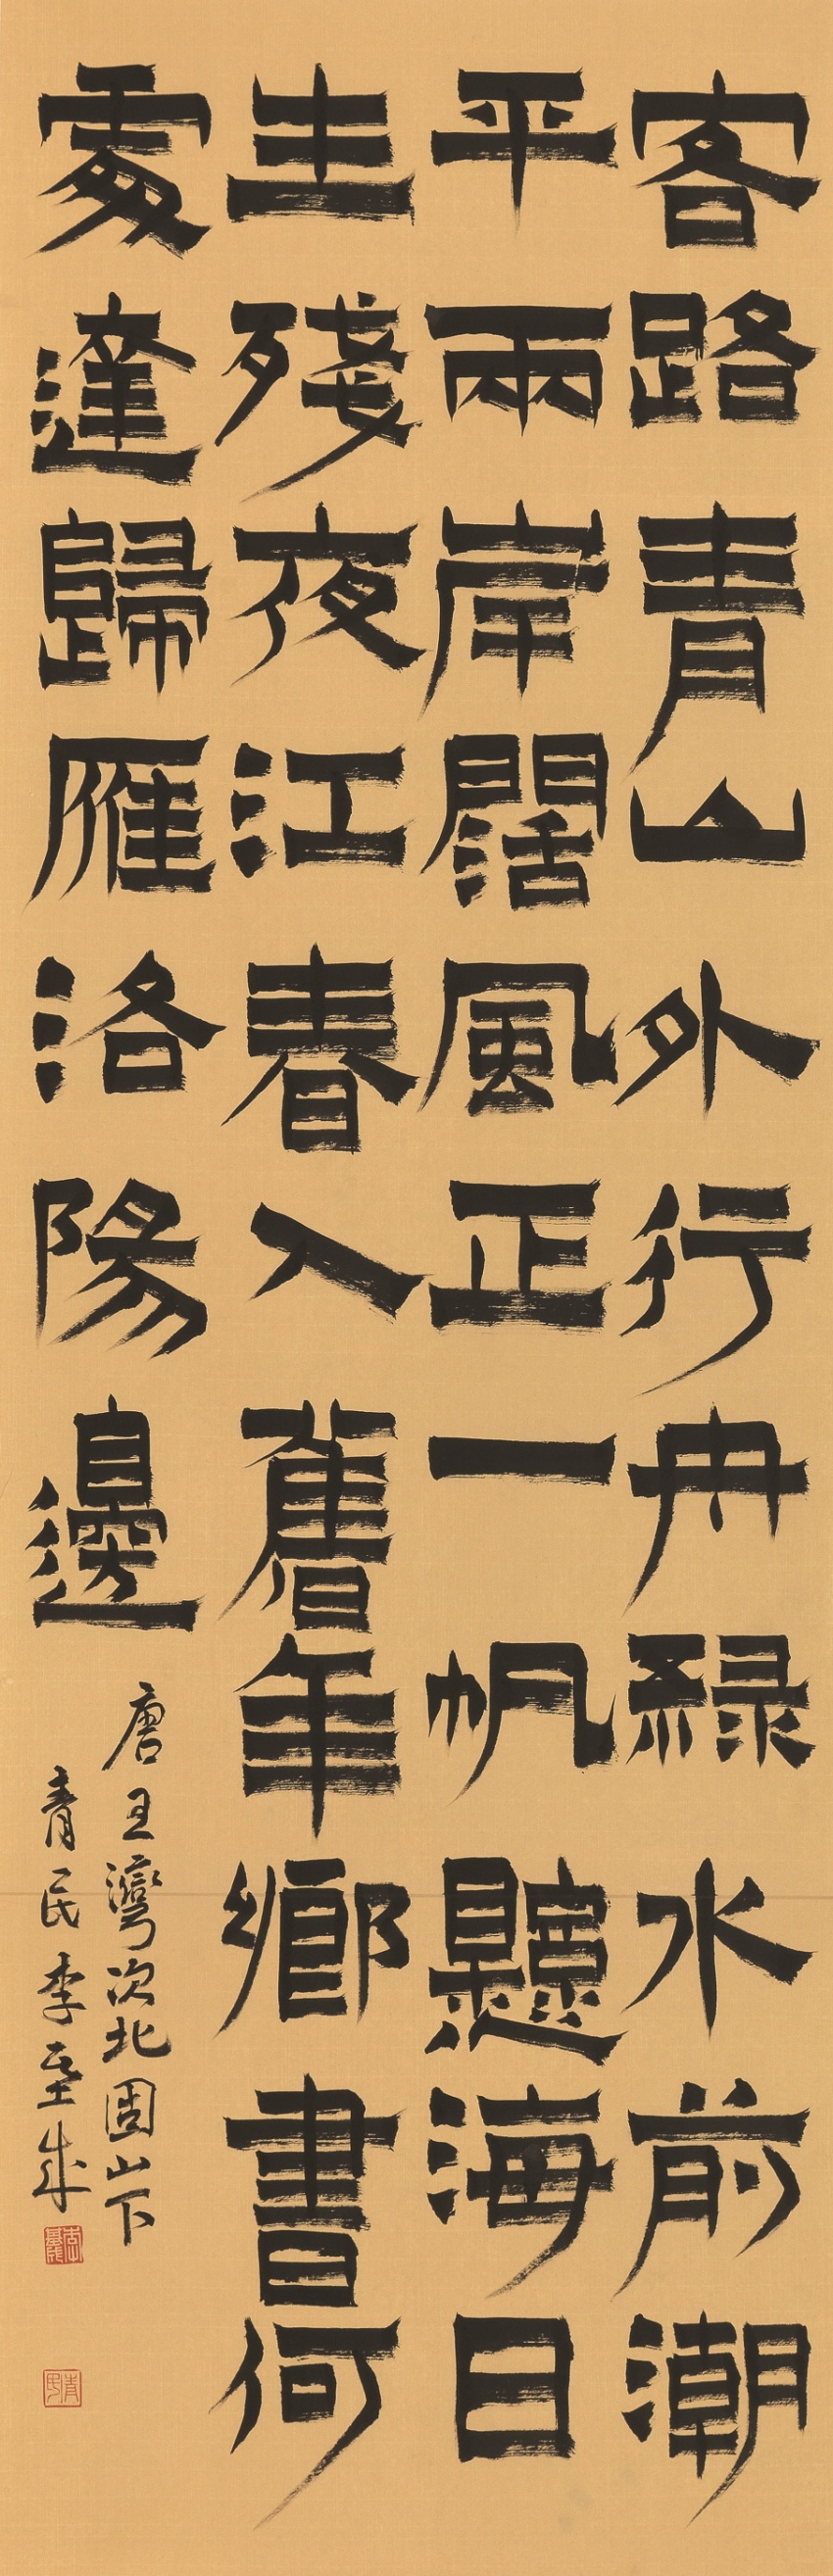 客路青山外行舟緑水前潮
平兩岸闊風正一帆懸海日
生殘夜江春入舊年鄉書何
處達歸雁洛陽邊
唐王灣次北固山下
青民李